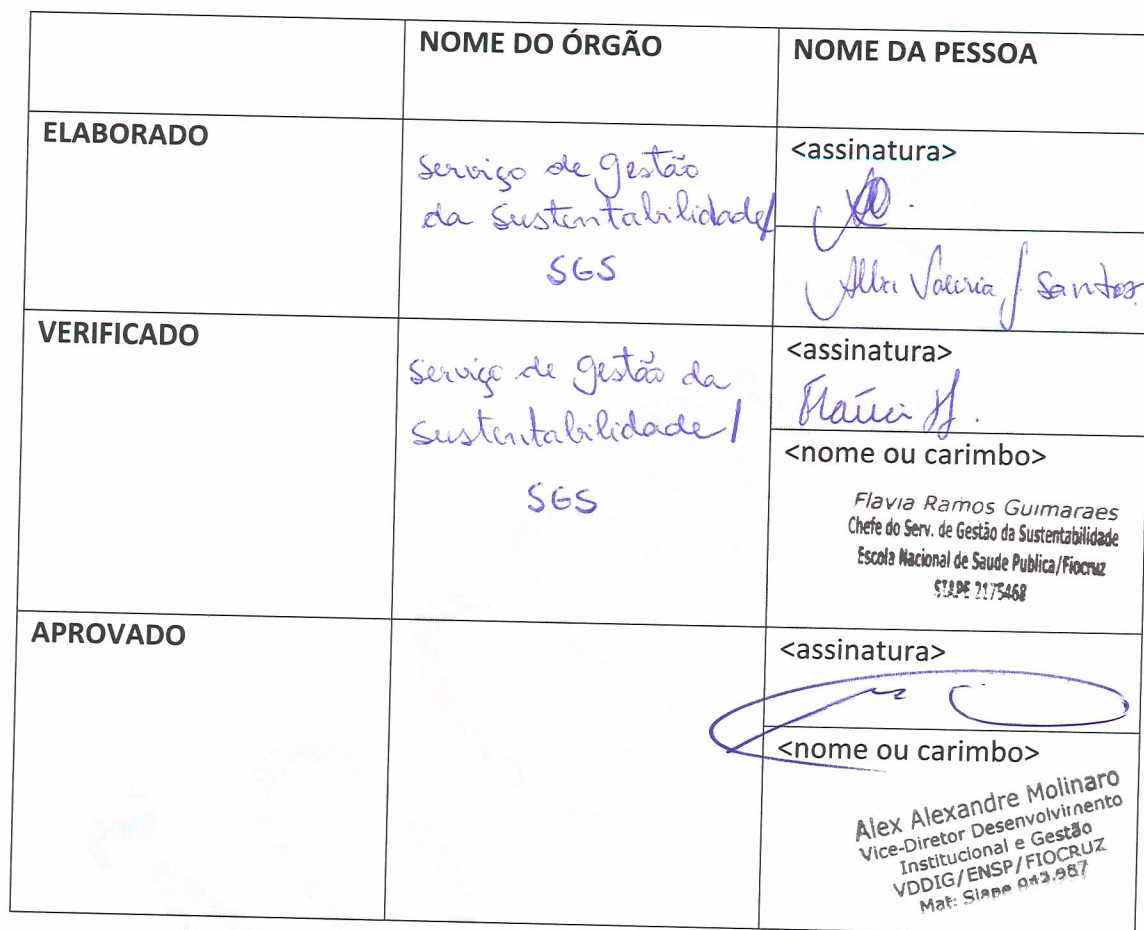 NOME DO ÓRGÃO
NOME DA PESSOA
ELABORADO
Serviço de Gestão
da Sustentabilidade/
SGS
<assinatura>
Alba Valéria / Santos.
VERIFICADO
Serviço de Gestão da
Sustentabilidade /
SGS
<assinatura>
Flávia
<nome ou carimbo>
Flavia Ramos Guimaraes
Chefe do Serv. de Gestão da Sustentabilidade
Escola Nacional de Saude Publica/Fiocruz
SIAPE 2175468
APROVADO
<assinatura>
<nome ou carimbo>
Alex Alexandre Molinaro
Vice-Diretor Desenvolvimento
Institucional e Gestão
VDDIG/ENSP/FIOCRUZ
Mat: Siape 043.987